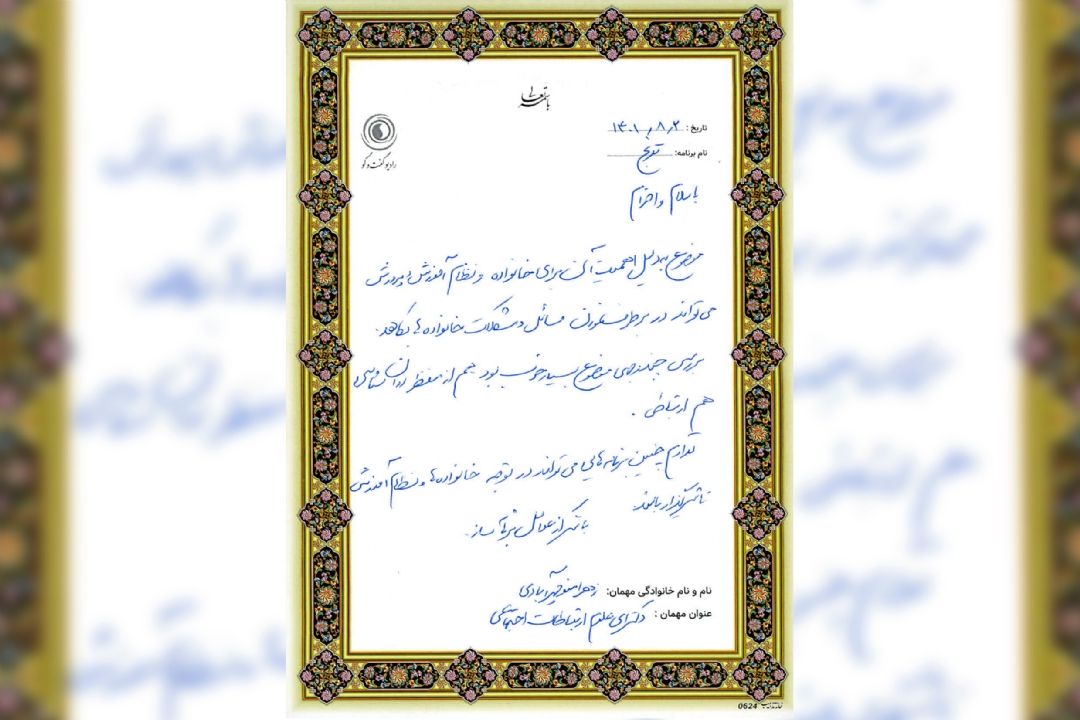 باسمه تعالی
تاریخ: ۱۴۰۱٫۸٫۲
رادیو گفت و گو
نام برنامه:
با سلام و احترام
موضوع به دلیل اهمیت آن برای خانواده و نظام آموزش و پرورش
می تواند در برطرف نمودن مسائل و مشکلات خانواده ها بکاهد.
بررسی چند وجهی موضوع بسیار خوب بود هم از منظر روان شناسی
هم ارتباطی.
تداوم چنین برنامه هایی می تواند در توجه خانواده ها و نظام آموزش
تأثیرگذار باشد.
با تشکر از عوامل برنامه ساز.
نام و نام خانوادگی مهمان: زهرا
عنوان مهمان: دکترای علوم ارتباطات اجتماعی
0624